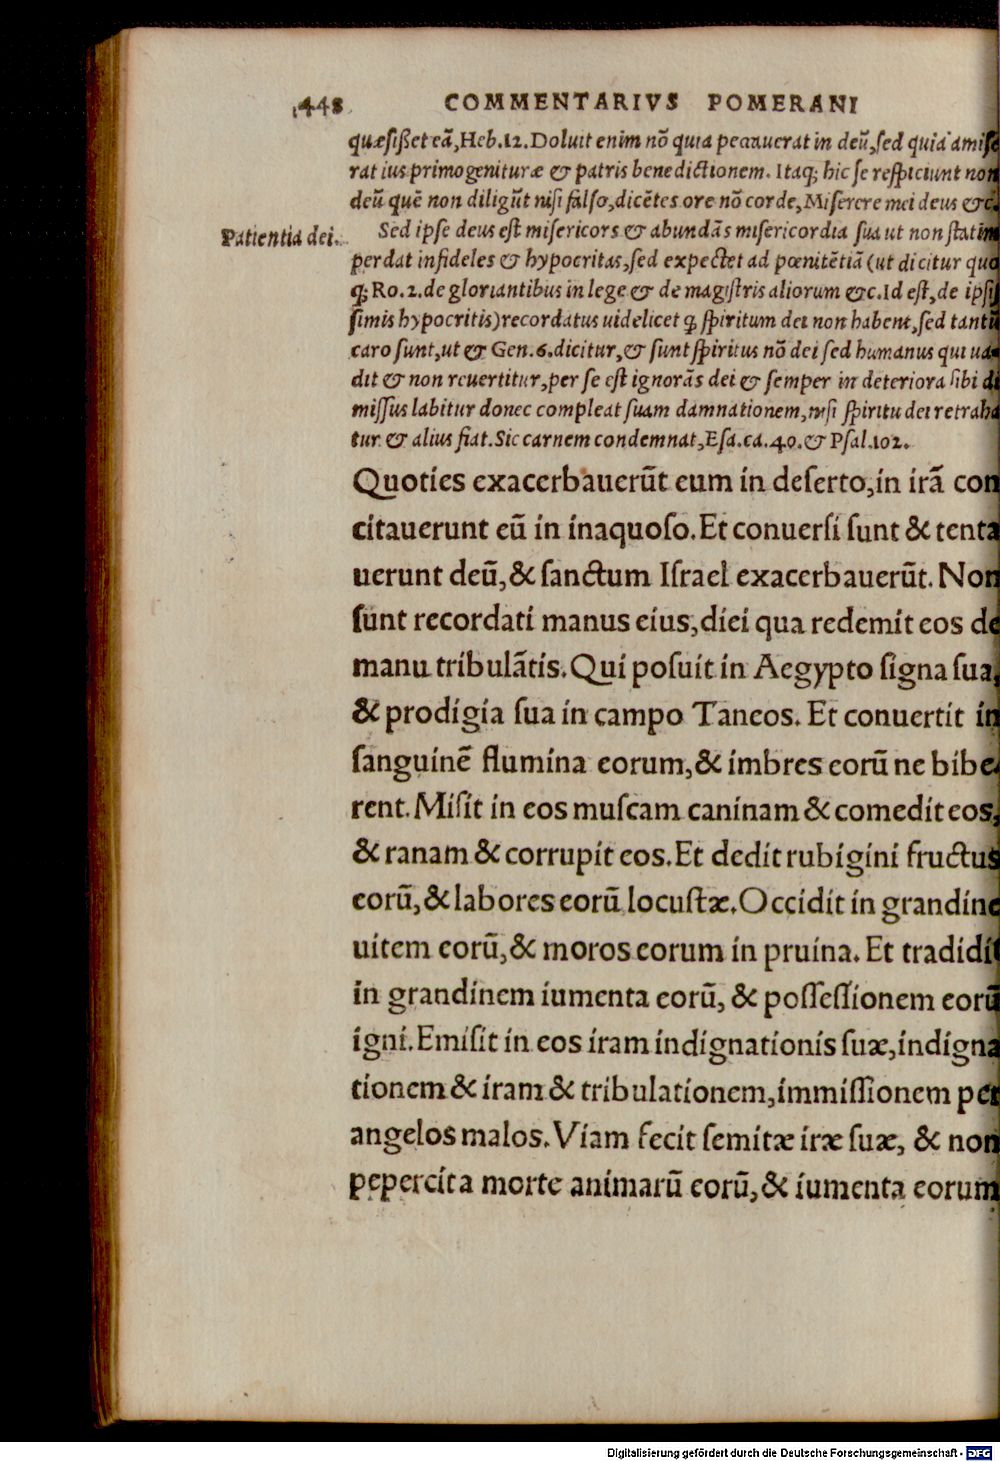 448 COMMENTARIVS POMERANI
quæsißet eā, Heb.12. Doluit enim nō quia peccauerat in deū, sed quia amise
rat ius primogenituræ & patris benedictionem. Itaq; hic se respiciunt non
deū quē non diligūt nisi falso, dicētes ore nō corde, Miserere mei deus &c.
Patientia dei.
Sed ipse deus est misericors & abundās misericordia sua ut non statim
perdat infideles & hypocritas, sed expectet ad pœnitētiā (ut dicitur quo
q; Ro.2. de gloriantibus in lege & de magistris aliorum &c. Id est, de ipsis
simis hypocritis) recordatus uidelicet q, spiritum dei non habent, sed tantū
caro sunt, ut & Gen.6. dicitur, & sunt spiritus nō dei sed humanus qui ua-
dit & non reuertitur, per se est ignorās dei & semper in deteriora sibi di
missus labitur donec compleat suam damnationem, nisi spiritu dei retraha
tur & alius fiat. Sic carnem condemnat, Esa.ca.40. & Psal.102.
Quoties exacerbauerūt eum in deserto, in irā con
citauerunt eū in inaquoso. Et conuersi sunt & tenta
uerunt deū, & sanctum Israel exacerbauerūt. Non
sunt recordati manus eius, diei qua redemit eos de
manu tribulātis. Qui posuit in Aegypto signa sua,
& prodigia sua in campo Taneos. Et conuertit in
sanguinē flumina eorum, & imbres eorū ne bibe-
rent. Misit in eos muscam caninam & comedit eos,
& ranam & corrupit eos. Et dedit rubigini fructus
eorū, & labores eorū locustæ. Occidit in grandine
uitem eorū, & moros eorum in pruina. Et tradidit
in grandinem iumenta eorū, & possessionem eorū
igni. Emisit in eos iram indignationis suæ, indigna
tionem & iram & tribulationem, immissionem per
angelos malos. Viam fecit semitæ iræ suæ, & non
pepercita morte animarū eorū, & iumenta eorum
Digitalisierung gefördert durch die Deutsche Forschungsgemeinschaft - DFG